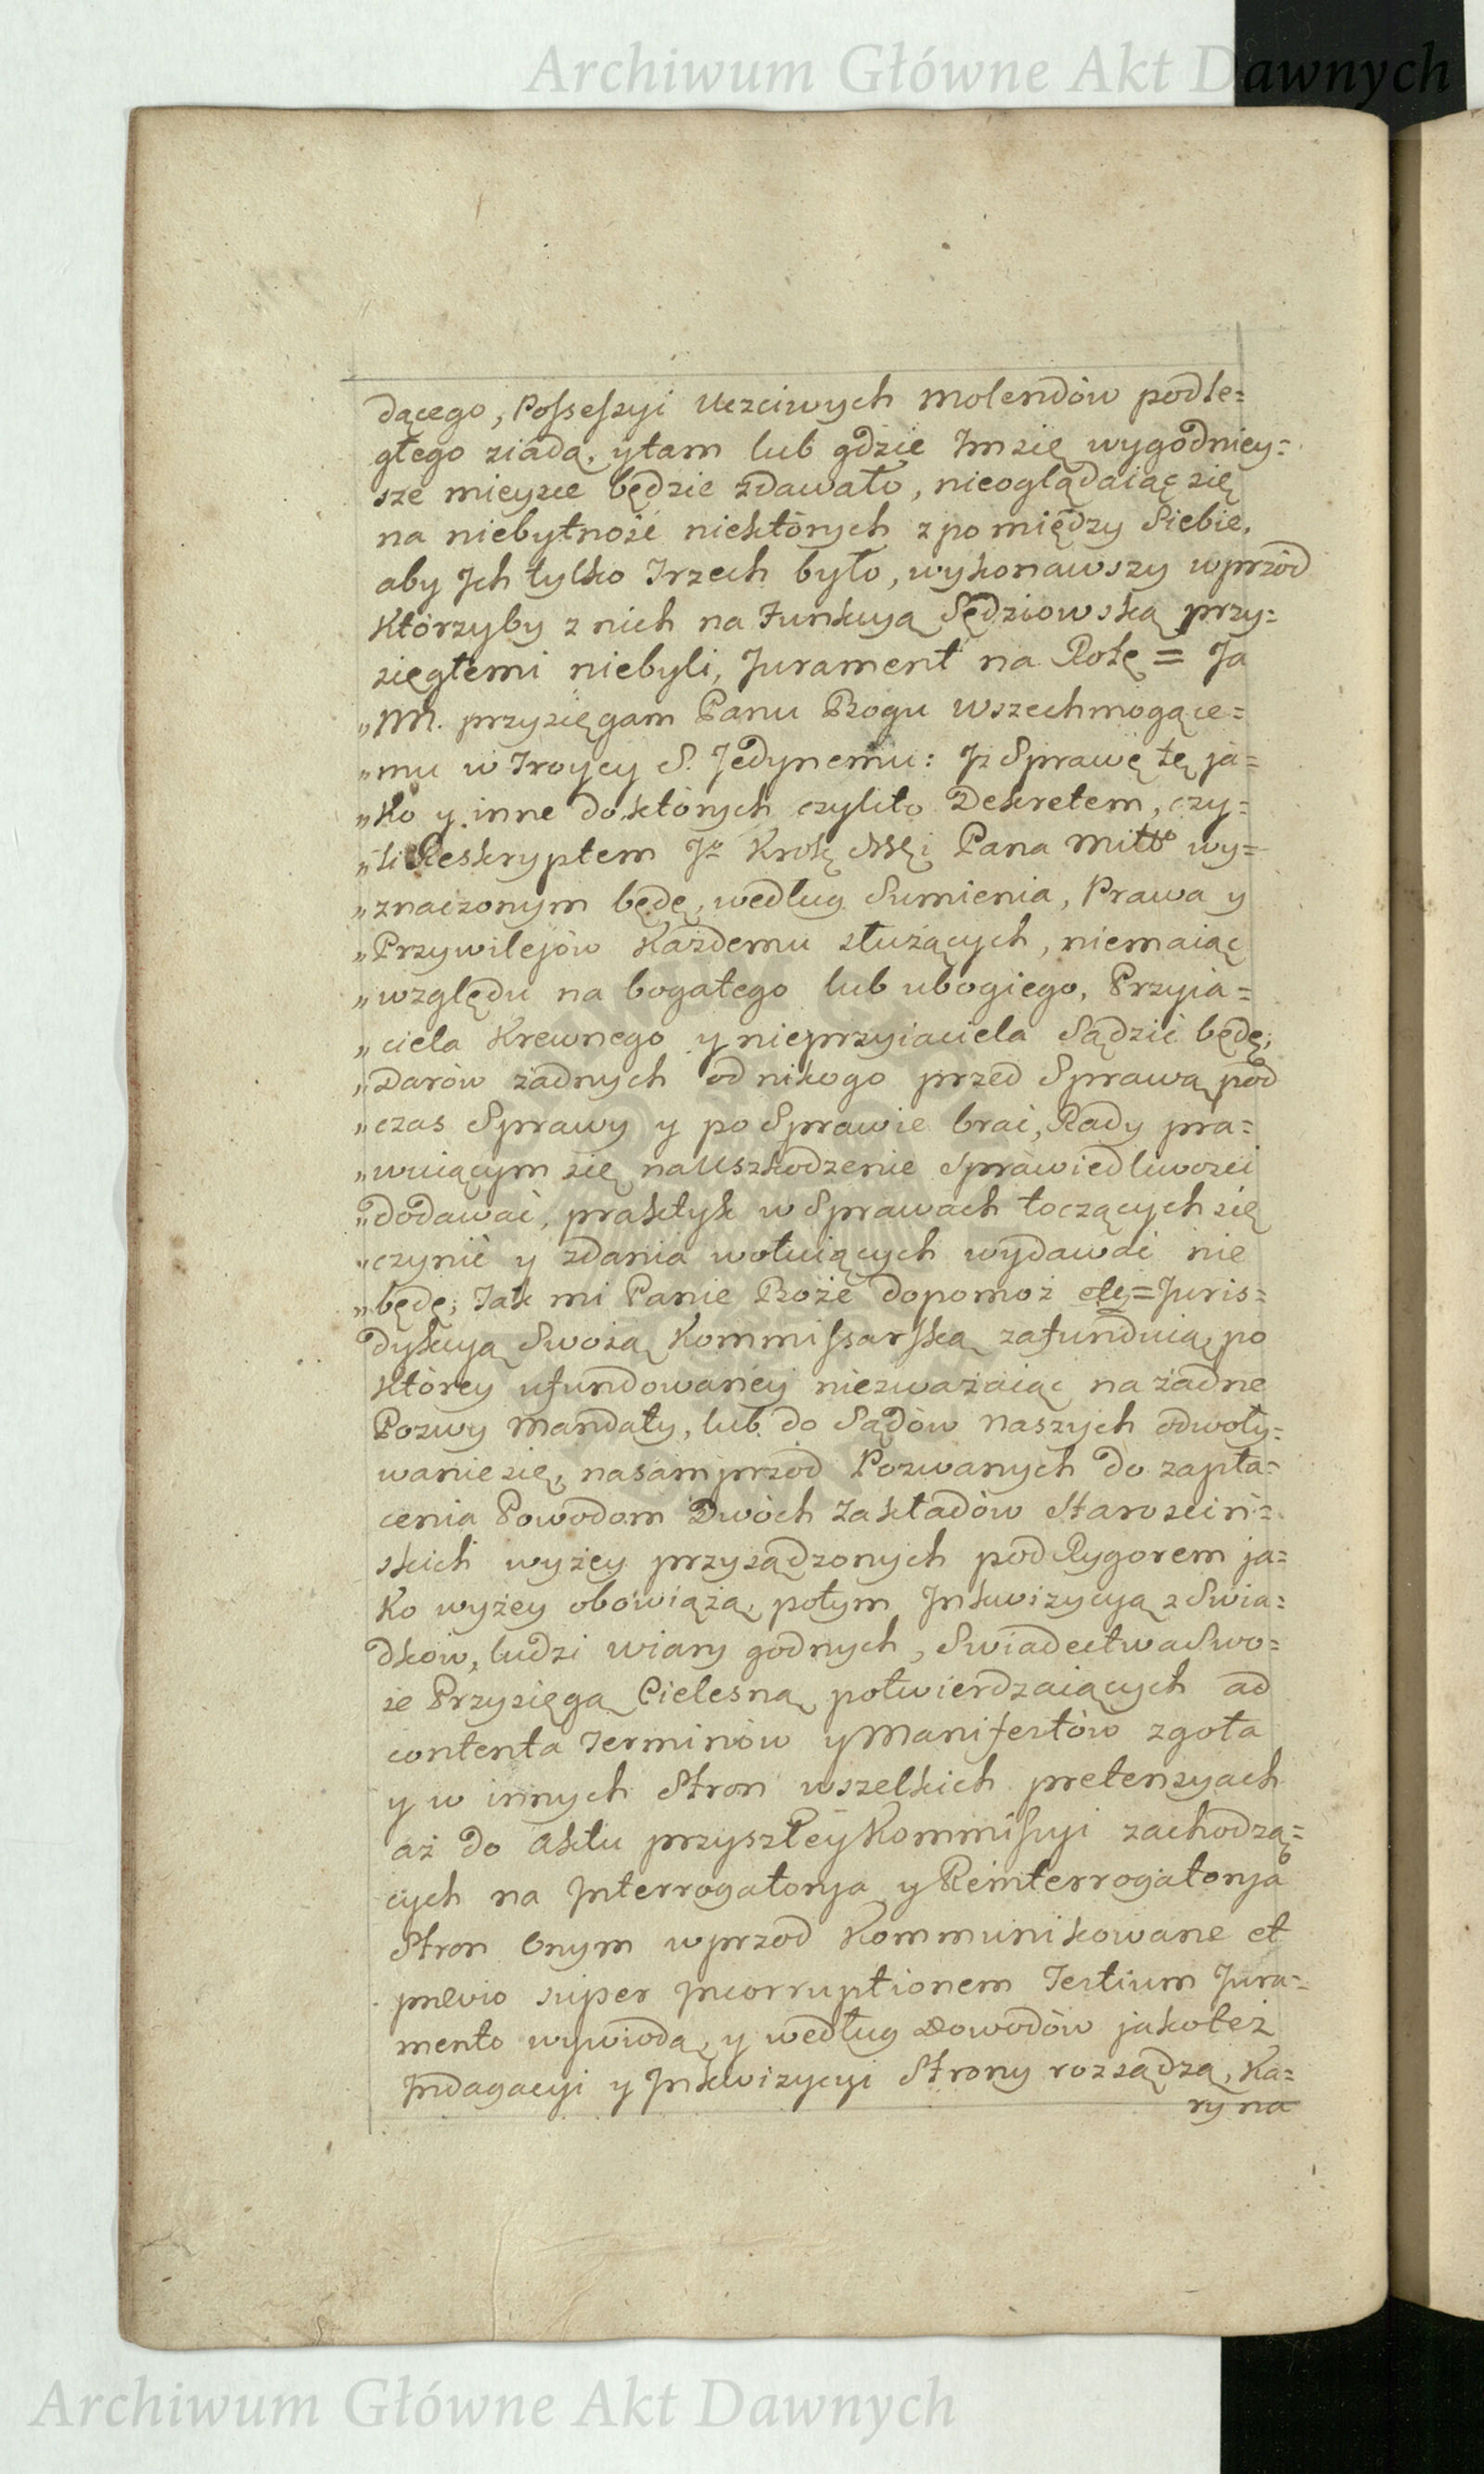 Archiwum Główne Akt Dawnych
dącego, Possessyi Uczciwych Molendów podle=
głego ziadą, y tam lub gdzie Im się wygodniey=
sze mieysce będzie zdawało, nieoglądaiąc się
na niebytność niektórych z pomiędzy Siebie,
aby Ich tylko Trzech było, wykonawszy wprzód
Którzyby z nich na Funkcyą Sędziowską przy=
sięgłemi niebyli, Jurament na Rotę = Ja
„N. przysięgam Panu Bogu Wszechmogące=
„mu w Troycy S. Jedynemu: Iż Sprawę tę ja=
„ko y inne do których czylito Dekretem, czy=
„li Reskryptem Jo Krolę Mści Pana Miłło wy=
„znaczonym będę, według Sumienia, Prawa y
„Przywilejów Każdemu służących, niemaiąc
„względu na bogatego lub ubogiego, Przyia=
„ciela Krewnego y nieprzyiaciela Sądzić będę;
„Darów żadnych od nikogo przed Sprawą pod
„czas Sprawy y po Sprawie brać, Rady pra=
„wuiącym się na Uszkodzenie Sprawiedliwości
„dodawać, praktyk w Sprawach toczących się
„czynić y zdania wotuiących wydawać nie
„będę; Tak mi Panie Boże dopomoż etc = Juris=
dykcyą Swoią Kommissarską zafunduią, po
Którey ufundowaney niezważaiąc na żadne
Pozwy Mandaty, lub do Sądów Naszych odwoły=
wanie się, nasamprzód Pozwanych do zapła=
cenia Powodom Dwóch Zakładów Starościń=
skich wyżey przysądzonych pod Rygorem ja=
Ko wyżey obowiążą, potym Inkwizycyą z Swia=
dków, ludzi wiary godnych, Swiadectwa Swo=
ie Przysięgą Cielesną potwierdzaiących ad
contenta Terminów y Manifestów zgoła
y w innych Stron wszelkich pretensyach
aż do Aktu przyszłey Kommissyi zachodzą=
cych na Interrogatorya y Reinterrogatorya
Stron Onym wprzod Kommunikowane et
prævio super Incorruptionem Testium Jura=
mento wywiodą, y według Dowodów jakoteż
Indagacyi y Inkwizycyi Strony rozsądzą, Ka=
ry na
Archiwum Główne Akt Dawnych